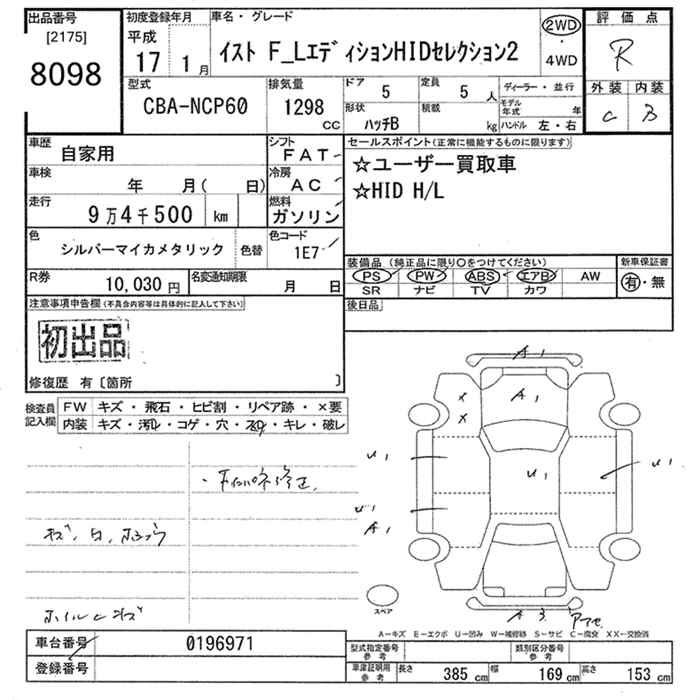 出品番号
[2175]
8098
初度登録年月
平成
17年 1月
車名・グレード
イスト F_LエディションHIDセレクション2
2WD
・
4WD
評価点
R
外装 内装
C B
型式
CBA-NCP60
排気量
1298
CC
ドア
5
定員
5人
形状
ハッチB
積載
kg
ディーラー・並行
モデル年式 年
ハンドル 左・右
車歴
自家用
シフト
FAT
車検
年 月( 日)
冷房
AC
走行
9万4千500 km
燃料
ガソリン
色
シルバーマイカメタリック
色替
色コード
1E7
セールスポイント(正常に機能するものに限ります)
☆ユーザー買取車
☆HID H/L
R券
10,030 円
名変通知期限
月 日
装備品(純正品に限り○をつけてください)
PS PW ABS エアB AW
SR ナビ TV カワ
新車保証書
有・無
注意事項申告欄(不具合内容等は具体的に記入して下さい)
後日品
初出品
修復歴 有〔箇所 〕
検査員記入欄
FW キズ・飛石・ヒビ割・リペア跡・×要
内装 キズ・汚れ・コゲ・穴・スレ・キレ・破レ
修正
キズ
ホイルキズ
A1
A1
X
X
U1
U1
U1
U1
A1
A3
スペア
A-キズ E-エクボ U-凹み W-補修跡 S-サビ C-腐食 XX-交換済
車台番号
0196971
登録番号
型式指定番号
参考
類別区分番号
参考
車庫証明用
参考
長さ 385 cm 幅 169 cm 高さ 153 cm